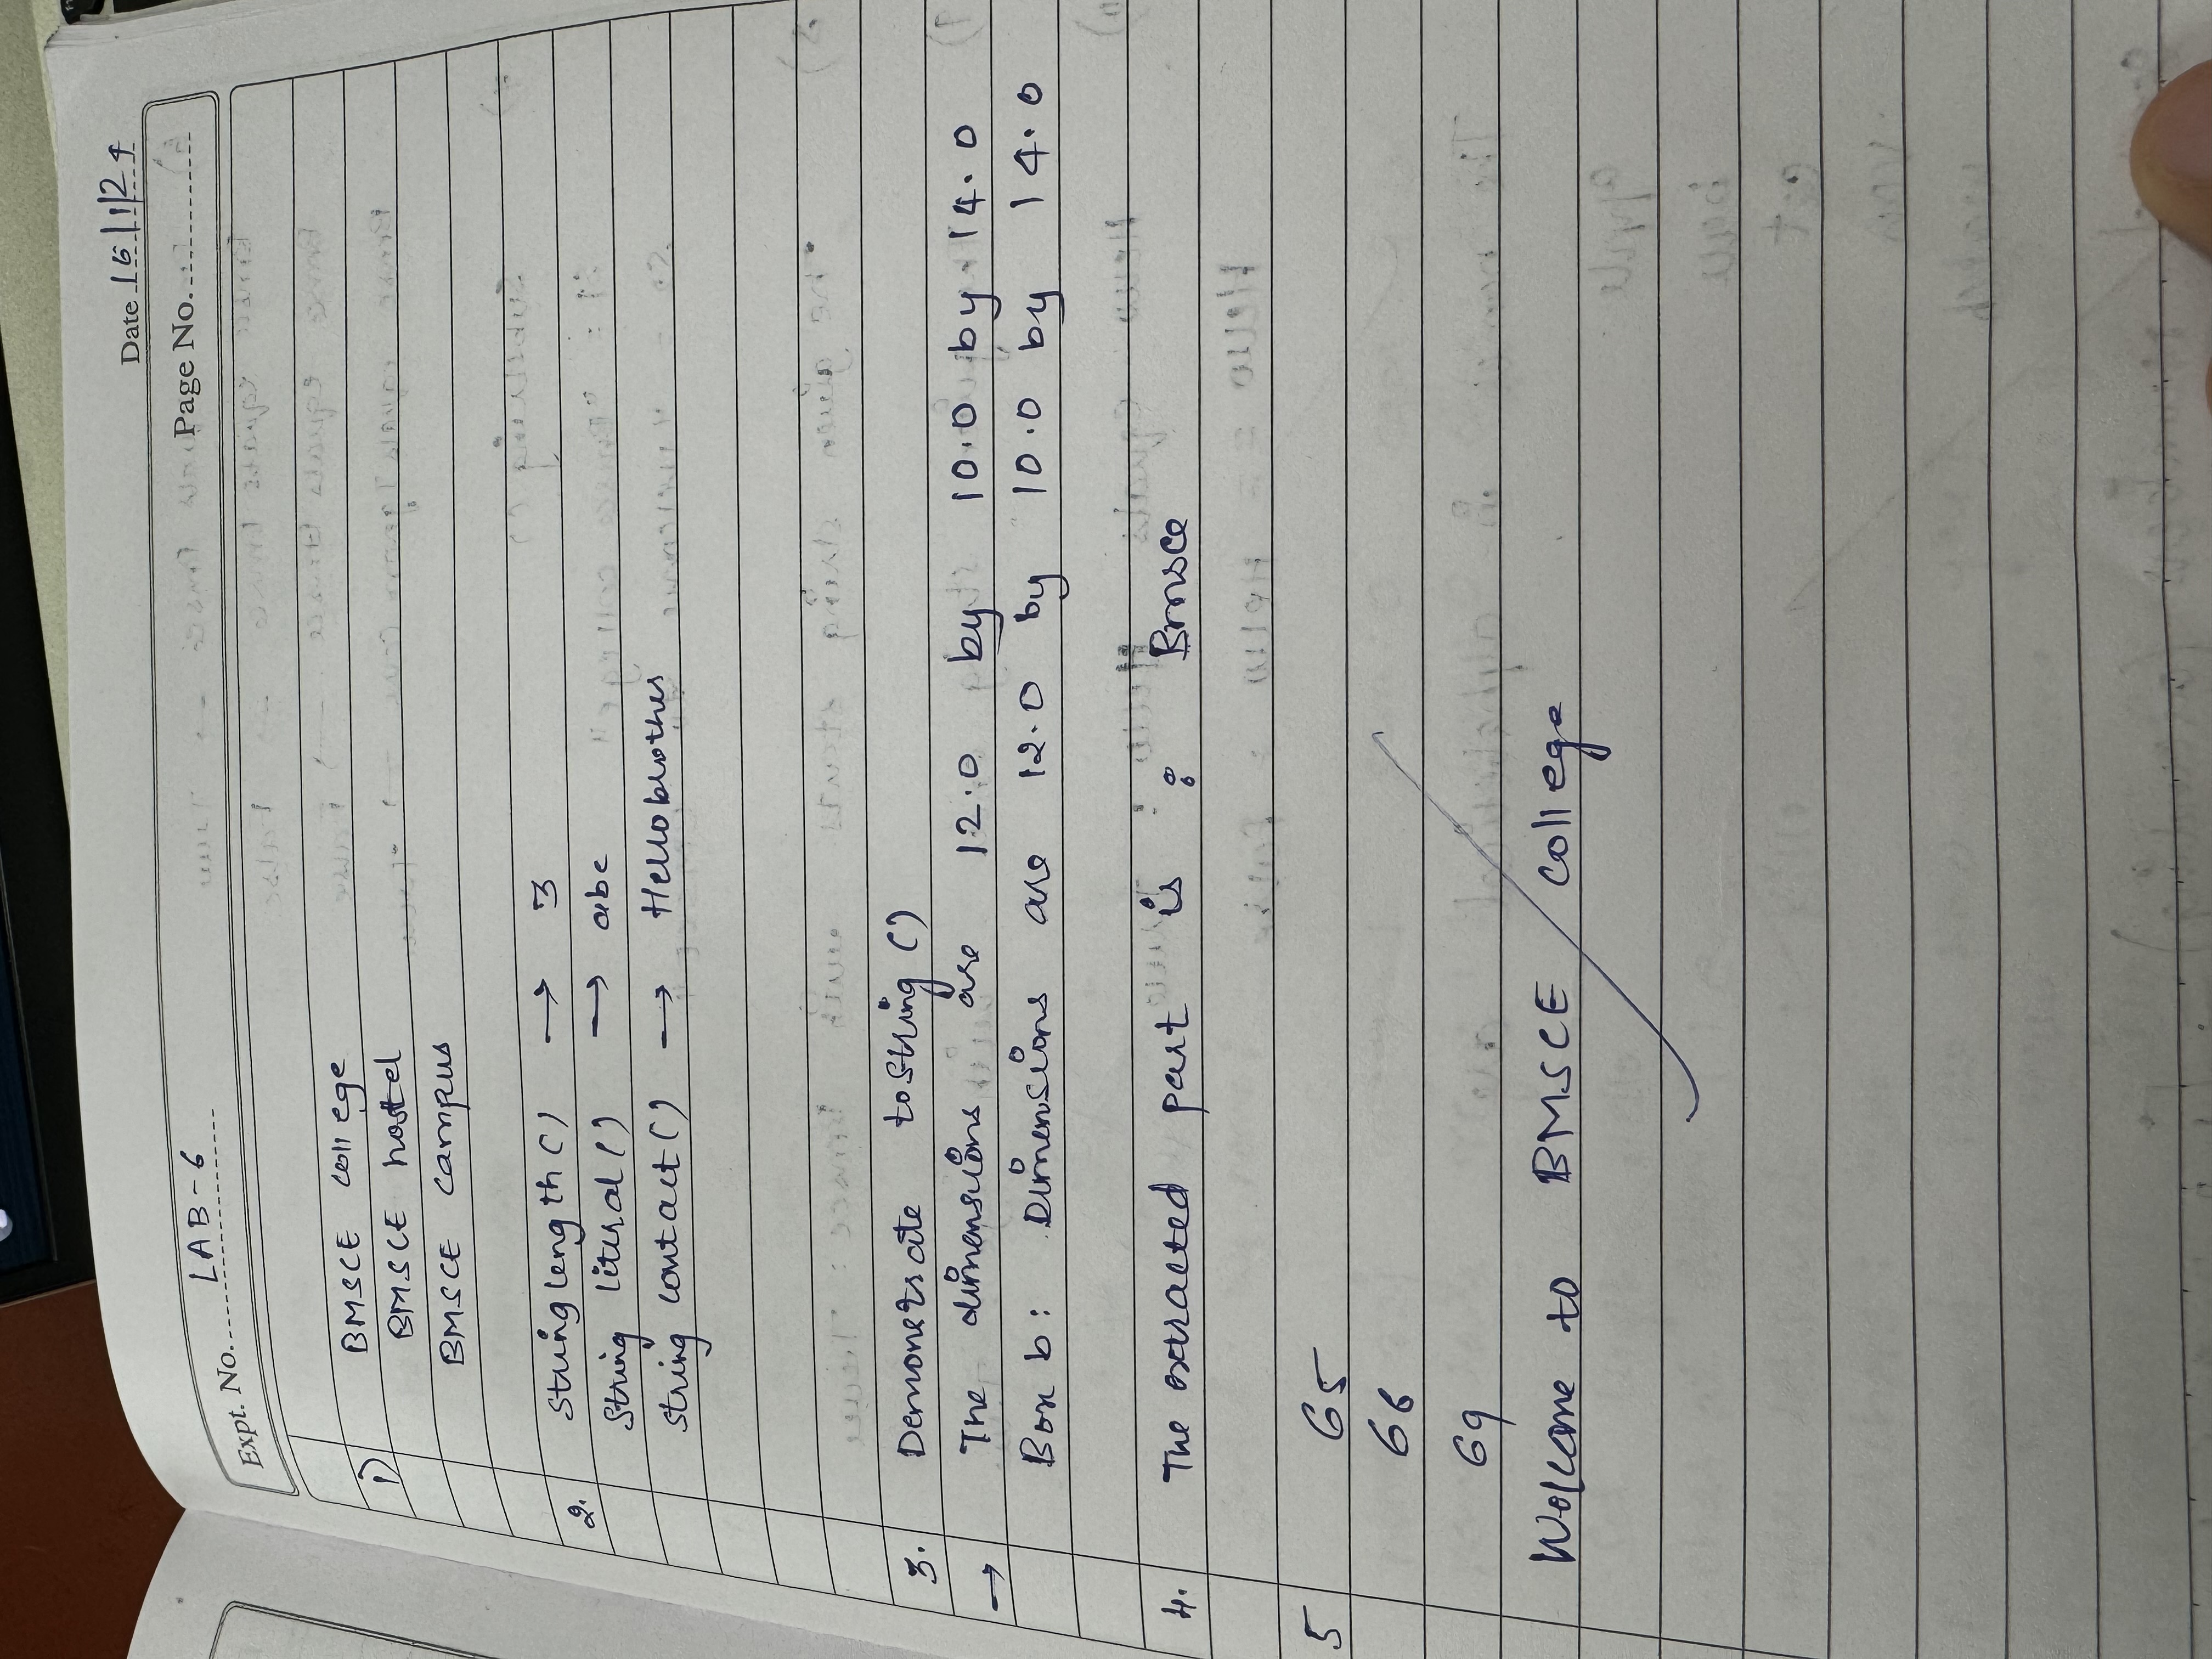 Date 16/1/24
Expt. No. LAB-6 Page No.
1) BMSCE college
BMSCE hostel
BMSCE campus
2. String length() → 3
String literal() → abc
String contact() → Hellobrother
3. Demonstrate toString()
→ The dimensions are 12.0 by 10.0 by 14.0
Box b: Dimensions are 12.0 by 10.0 by 14.0
4. The extracted part is : Bmsce
5 65
66
69
Welcome to BMSCE college